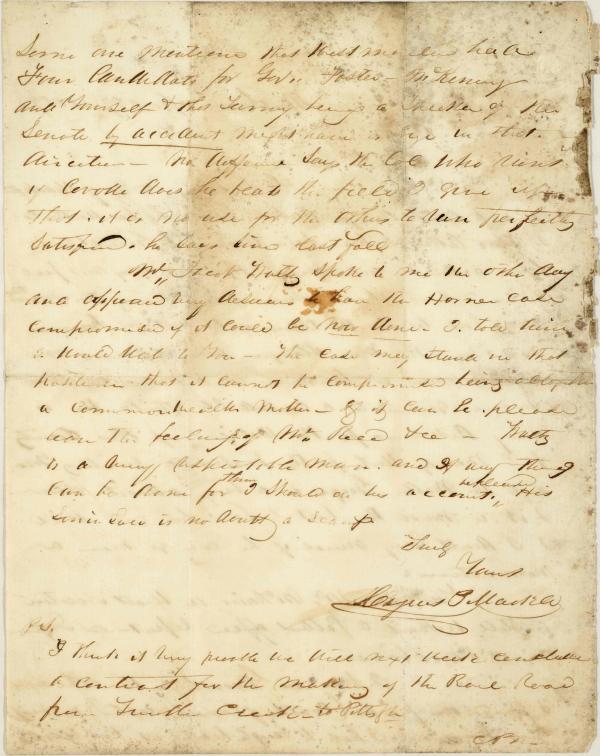 Some one mentions that there may be
Four Candidates for Gov. Foster - McKenney
and Yourself & this Turney being a Speaker of the
Senate by accident might have in that
direction - no difference says the Col who runs
if Covode does he beats the field I give it
that it is no use for the others to run perfectly
Satisfied. he says since last fall
Mr. Jacob Hatty Spoke to me the other day
and appeared very desirous to have the Horner Case
compromised if it could be now done - I told him
I would Write to You - The Case may stand in that
position that it cannot be compromised being altogether
a commonwealths Matter - & if it can be please
learn the feelings of Mr. Reed &c - Hatty
is a very respectable man. and if any thing
can be done for them I should on his account, His
Son in Law is no doubt, a Scamp
Truly
Yours
P.S.
I think it very probable we will next week conclude
a contract for the making of the Rail Road
from Turtle Creek - to Pittsgh